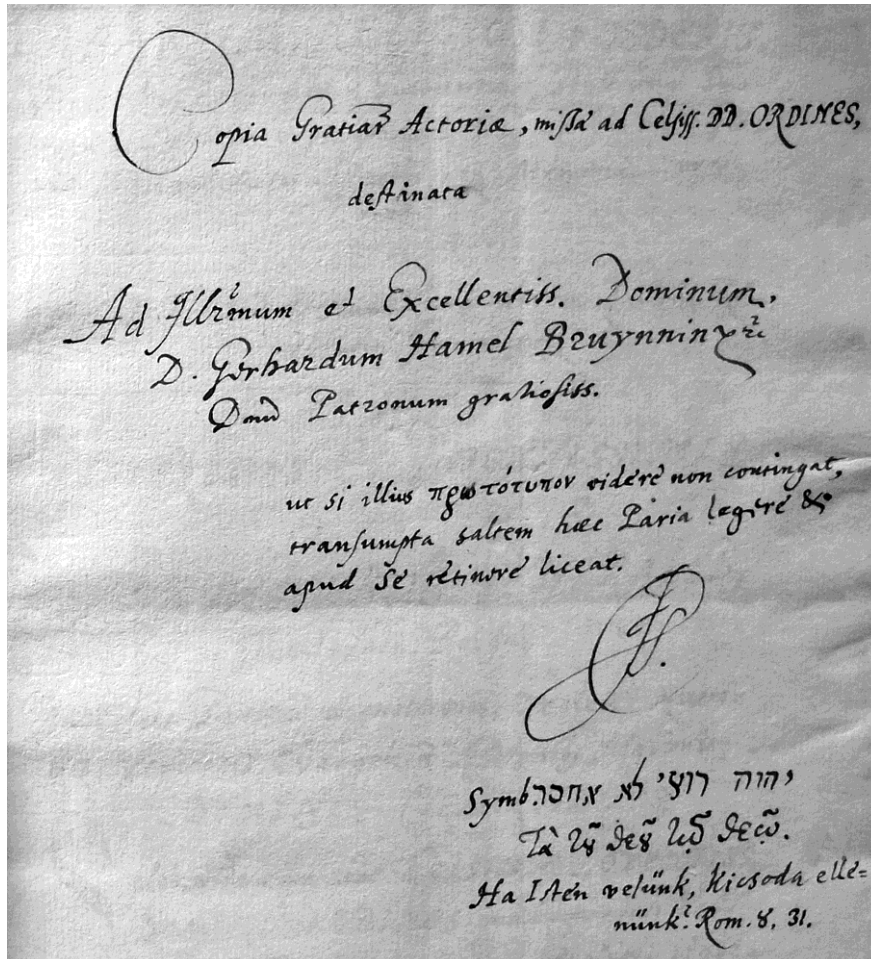 Copia Gratiar̃ Actoriæ, missa ad Celsiss. DD. ORDINES,
destinata
Ad Illr̃mum et Excellentiss. Dominum,
D. Gerhardum Hamel Bruynninx
Patronum gratiosiss.
ut si illius πρωτότυπον videre non contingat,
transumpta saltem hæc Paria legere &
apud Se retinere liceat.
Symb. יהוה רועי לא אחסר
Τὰ τοῦ θεοῦ τῷ θεῷ.
Ha Isten velünk, kicsoda elle=
nünk? Rom. 8, 31.